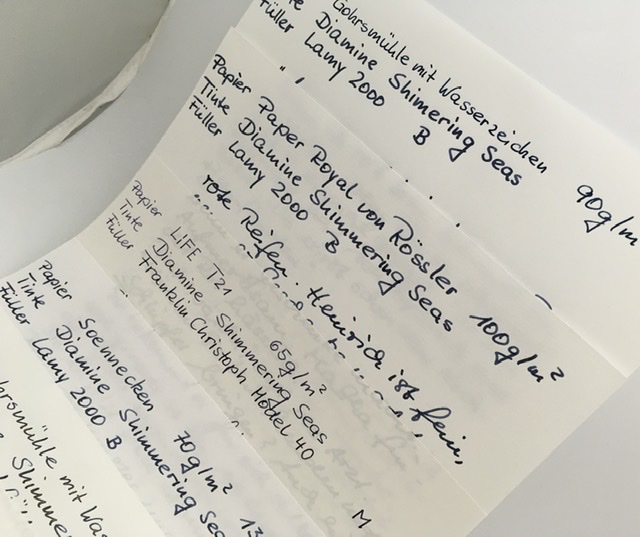 Gohrsmühle mit Wasserzeichen 90g/m
Diamine Shimering Seas
Füller Lamy 2000 B
Papier Paper Royal von Rössler 100g/m²
Tinte Diamine Shimmering Seas
Füller Lamy 2000 B
rote Reifen. Heinrich ist fein,
Papier LIFE T21 65g/m²
Tinte Diamine Shimmering Seas
Füller Franklin Christoph Model 40 M
Papier Soennecken 70g/m² 13
Tinte Diamine Shimmering Sea
Füller Lamy 2000 B
hrsmühle mit Was
Shimme